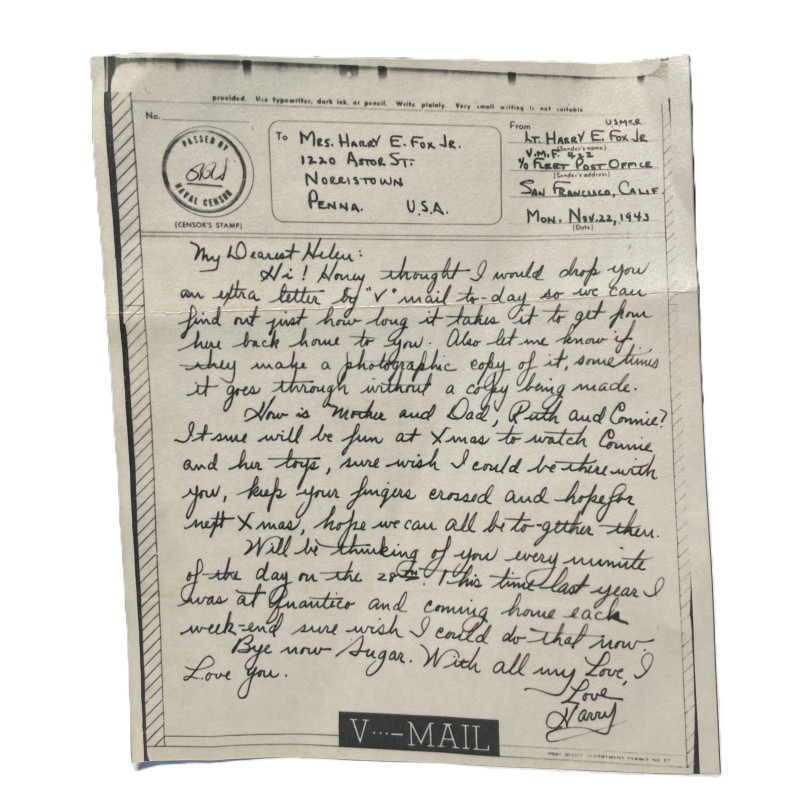 provided. Use typewriter, dark ink, or pencil. Write plainly. Very small writing is not suitable.
No.
PASSED BY
NAVAL CENSOR
(CENSOR'S STAMP)
To Mrs. Harry E. Fox Jr.
1220 Astor St.
Norristown
Penna. U.S.A.
From USMCR
Lt. Harry E. Fox Jr
(Sender's name)
V.M.F. 422
c/o Fleet Post Office
(Sender's address)
San Francisco, Calif.
Mon. Nov. 22, 1943
(Date)
My Dearest Helen:
Hi! Honey thought I would drop you
an extra letter by "V" mail to-day so we can
find out just how long it takes it to get from
here back home to you. Also let me know if
they make a photographic copy of it, sometimes
it goes through without a copy being made.
How is Mother and Dad, Ruth and Connie?
It sure will be fun at Xmas to watch Connie
and her toys, sure wish I could be there with
you, keep your fingers crossed and hope for
next Xmas, hope we can all be to-gether then.
Will be thinking of you every minute
of the day on the 28th. This time last year I
was at Quantico and coming home each
week-end sure wish I could do that now.
Bye now Sugar. With all my Love, I
Love You.
Love
Harry
V···-MAIL
POST OFFICE DEPARTMENT PERMIT NO.